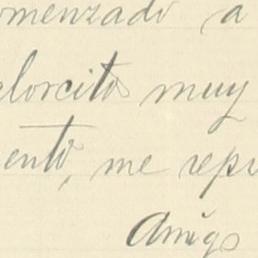 omenzado a
elorcitos muy
ento, me repi
Amigo